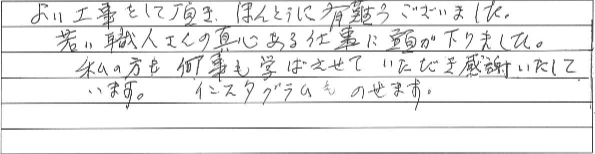 よい工事をして頂き、ほんとうに有難うございました。
若い職人さんの真心ある仕事に頭が下りました。
私の方も何事も学ばさせていただき感謝いたして
います。 インスタグラムものせます。